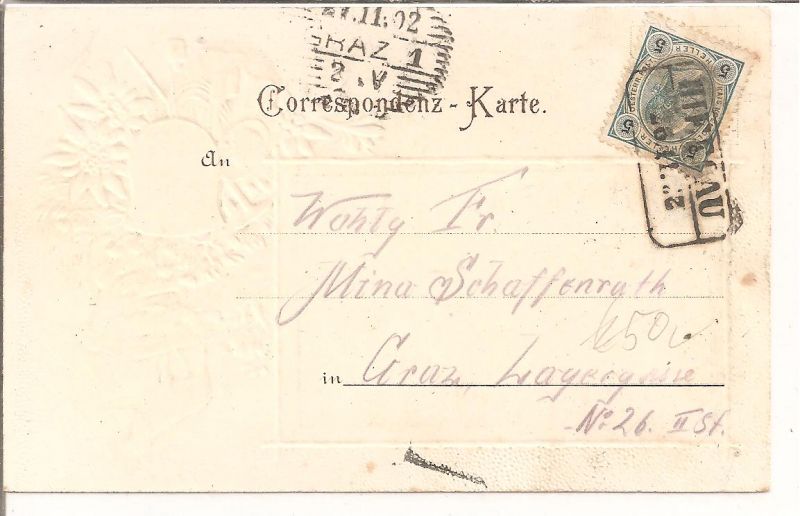 27.11.02
GRAZ 1
2. V
5 HELLER 5
5 5
Correspondenz-Karte.
An
Wohlg Fr.
Mina Schaffenrath
250
in Graz, Lagergasse
No. 26. II St.